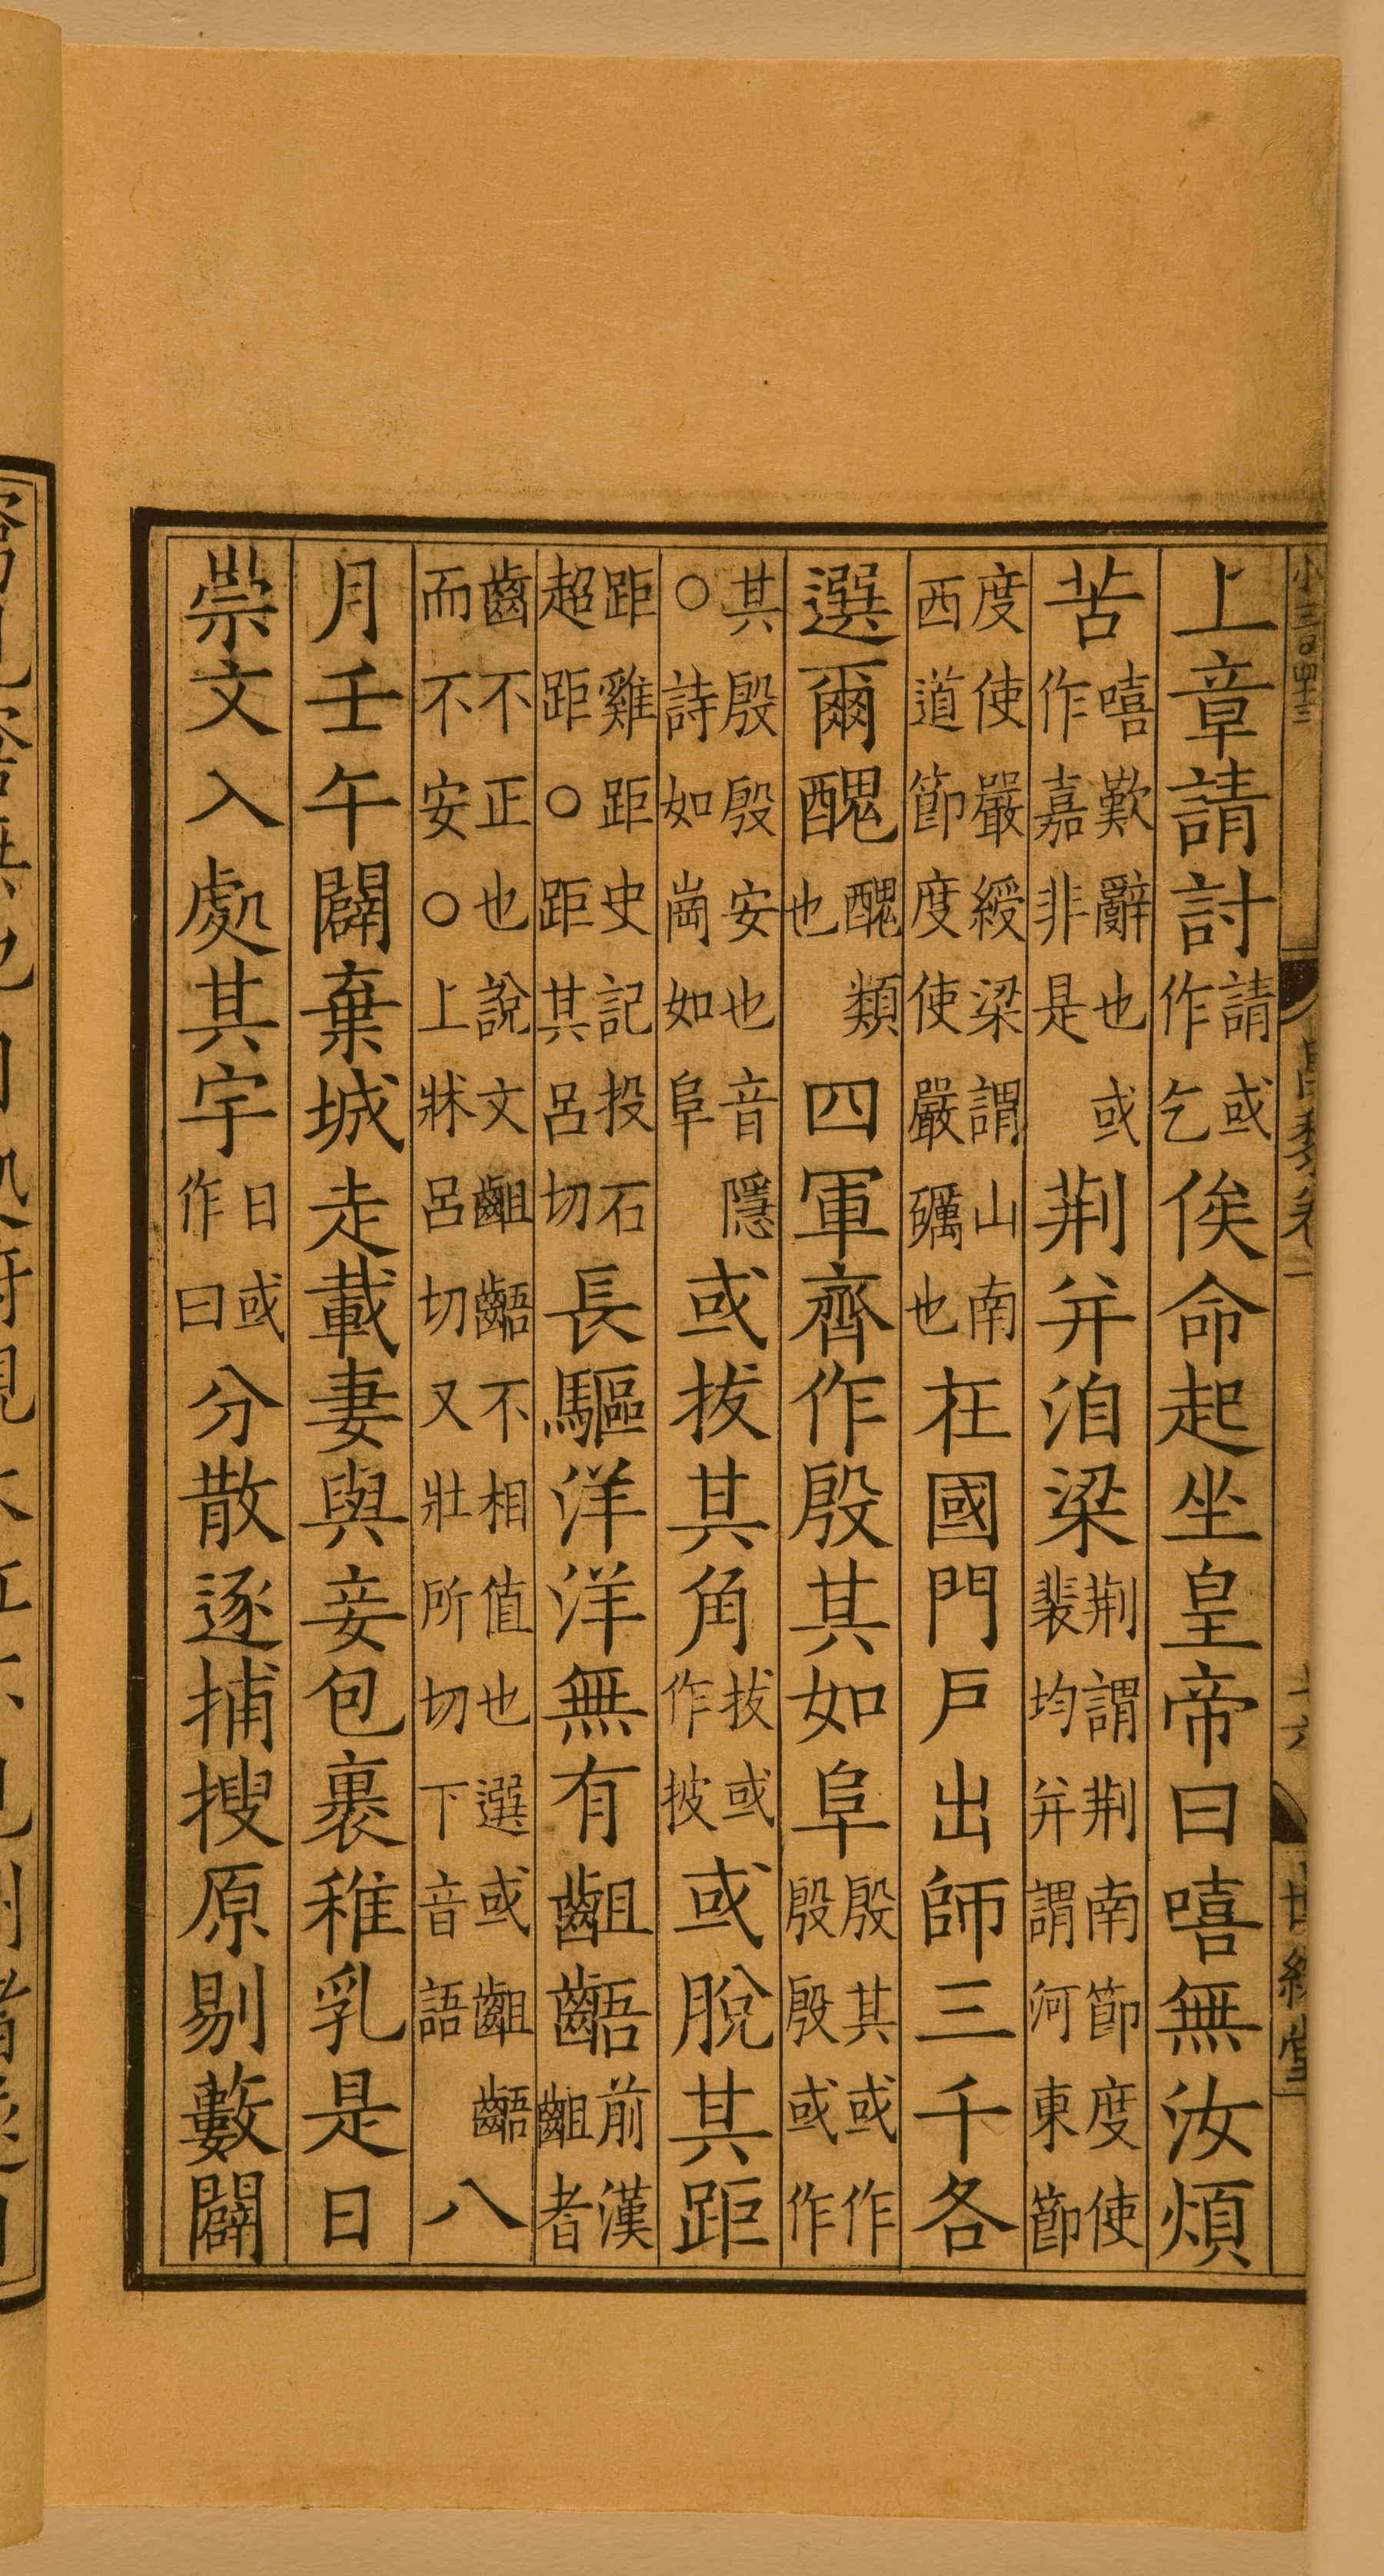 小三百四十三
昌黎卷一
十六
世綵堂
上章請討請或作乞俟命起坐皇帝曰嘻無汝煩
苦嘻歎辭也或作嘉非是荆并洎梁荆謂荆南節度使裴均并謂河東節
度使嚴綬梁謂山南西道節度使嚴礪也在國門戶出師三千各
選爾醜醜類也四軍齊作殷其如阜殷其或作殷殷或作
其殷殷安也音隱○詩如崗如阜或拔其角拔或作披或脫其距
距雞距史記投石超距○距其呂切長驅洋洋無有齟齬前漢齟者
齒不正也說文齟齬不相值也選或齟齬而不安○上牀呂切又壯所切下音語八
月壬午闢棄城走載妻與妾包裹稚乳是日
崇文入處其宇日或作曰分散逐捕搜原剔藪闢